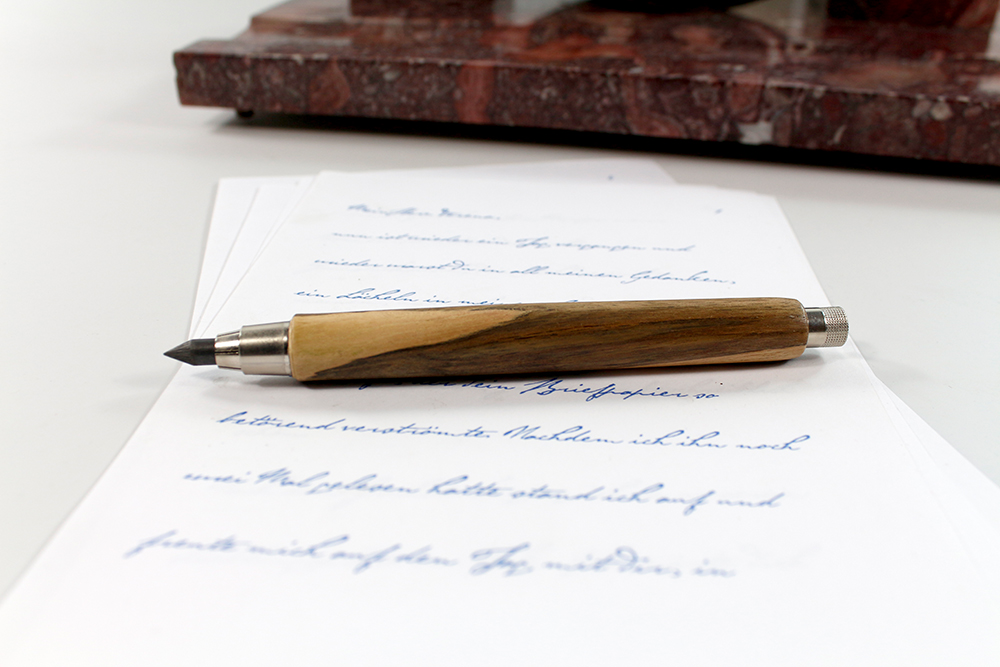 nun ist wieder ein Tag vergangen und
wieder warst Du in all meinen Gedanken,
ein Lächeln in
dein Briefpapier so
betörend verströmte. Nachdem ich ihn noch
zwei Mal gelesen hatte stand ich auf und
freute mich auf den Tag mit Dir, in